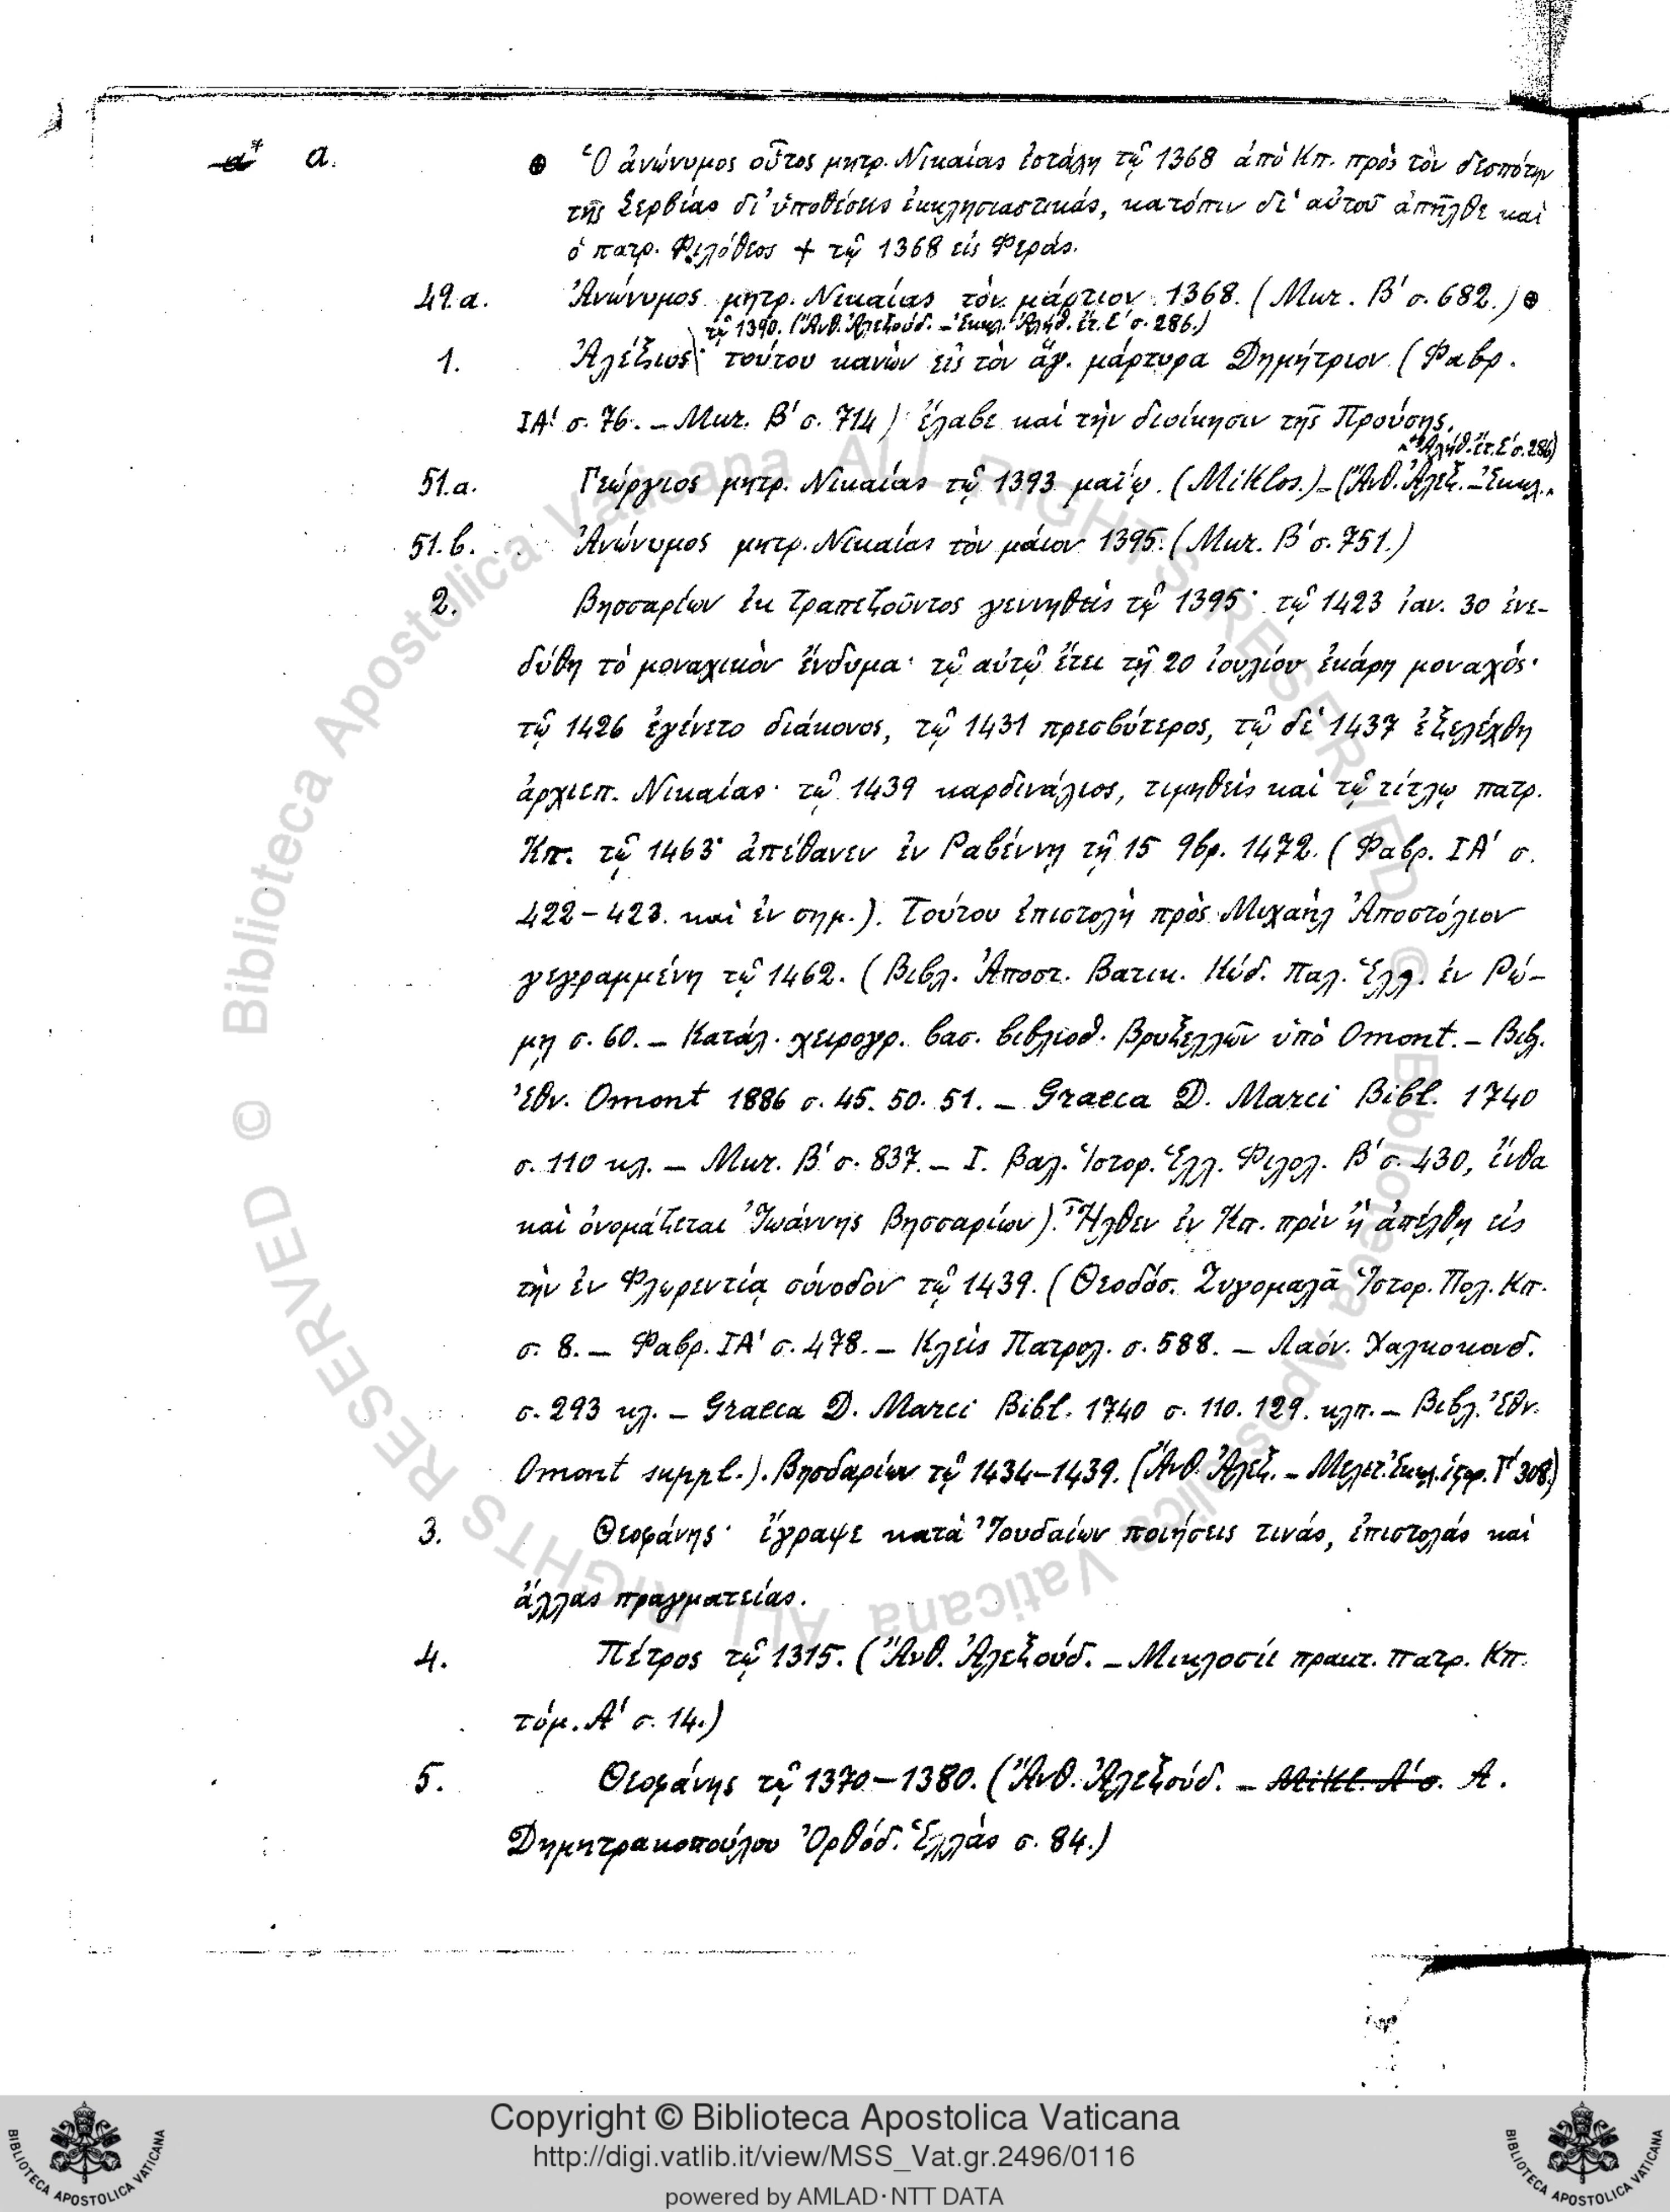 a* a.
⊕ Ὁ ἀνώνυμος οὗτος μητρ. Νικαίας ἐστάλη τῷ 1368 ἀπὸ Κπ. πρὸς τὸν δεσπότην
τῆς Σερβίας δι' ὑποθέσεις ἐκκλησιαστικάς, κατόπιν δὲ αὐτοῦ ἀπῆλθε καὶ
ὁ πατρ. Φιλόθεος + τῷ 1368 εἰς Φεράς.
49.a. Ἀνώνυμος μητρ. Νικαίας τὸν μάρτιον 1368. (Μικ. Β' σ. 682.) ⊕
τῷ 1390. (Ἄνθ. Ἀλεξούδ. – Ἐκκλ. Ἀλήθ. ἔτ. Ε' σ. 286.)
1. Ἀλέξιος· τούτου κανὼν εἰς τὸν ἅγ. μάρτυρα Δημήτριον (Φαβρ.
ΙΑ' σ. 76. – Μικ. Β' σ. 714) ἔλαβε καὶ τὴν διοίκησιν τῆς Προύσης.
Ἀλήθ. ἔτ. Ε' σ. 286)
51.a. Γεώργιος μητρ. Νικαίας τῷ 1393 μαΐῳ. (Miklos.) – (Ἄνθ. Ἀλεξ. – Ἐκκλ.
51.b. Ἀνώνυμος μητρ. Νικαίας τὸν μάιον 1395. (Μικ. Β' σ. 751.)
2. Βησσαρίων ἐκ Τραπεζοῦντος γεννηθεὶς τῷ 1395· τῷ 1423 ἰαν. 30 ἐνε-
δύθη τὸ μοναχικὸν ἔνδυμα· τῷ αὐτῷ ἔτει τῇ 20 ἰουλίου ἐκάρη μοναχός·
τῷ 1426 ἐγένετο διάκονος, τῷ 1431 πρεσβύτερος, τῷ δὲ 1437 ἐξελέχθη
ἀρχιεπ. Νικαίας· τῷ 1439 καρδινάλιος, τιμηθεὶς καὶ τῷ τίτλῳ πατρ.
Κπ. τῷ 1463· ἀπέθανεν ἐν Ραβέννῃ τῇ 15 9βρ. 1472. (Φαβρ. ΙΑ' σ.
422–423. καὶ ἐν σημ.). Τούτου ἐπιστολὴ πρὸς Μιχαὴλ Ἀποστόλιον
γεγραμμένη τῷ 1462. (Βιβλ. Ἀποστ. Βατικ. Κώδ. Παλ. Ἑλλ. ἐν Ρώ-
μῃ σ. 60. – Κατάλ. χειρογρ. βασ. βιβλιοθ. Βρυξελλῶν ὑπὸ Omont. – Βιβλ.
Ἐθν. Omont 1886 σ. 45. 50. 51. – Graeca D. Marci Bibl. 1740
σ. 110 κλ. – Μικ. Β' σ. 837. – Ι. Βαλ. Ἱστορ. Ἑλλ. Φιλολ. Β' σ. 430, ἔνθα
καὶ ὀνομάζεται Ἰωάννης Βησσαρίων). Ἦλθεν ἐν Κπ. πρὶν ἢ ἀπέλθῃ εἰς
τὴν ἐν Φλωρεντίᾳ σύνοδον τῷ 1439. (Θεοδόσ. Ζυγομαλᾶ Ἱστορ. Πολ. Κπ.
σ. 8. – Φαβρ. ΙΑ' σ. 478. – Κλεὶς Πατρολ. σ. 588. – Λαόν. Χαλκοκονδ.
σ. 293 κλ. – Graeca D. Marci Bibl. 1740 σ. 110. 129. κλπ. – Βιβλ. Ἐθν.
Omont suppl.). Βησσαρίων τῷ 1434–1439. (Ἄνθ. Ἀλεξ. – Μελετ. Ἐκκλ. ἱστορ. Γ' 308.)
3. Θεοφάνης· ἔγραψε κατὰ Ἰουδαίων ποιήσεις τινάς, ἐπιστολὰς καὶ
ἄλλας πραγματείας.
4. Πέτρος τῷ 1315. (Ἄνθ. Ἀλεξούδ. – Μικλοσίε πρακτ. πατρ. Κπ.
τόμ. Α' σ. 14.)
5. Θεοφάνης τῷ 1370–1380. (Ἄνθ. Ἀλεξούδ. – Mikl. Α' σ. Α.
Δημητρακοπούλου Ὀρθόδ. Ἑλλὰς σ. 84.)
© Biblioteca Apostolica Vaticana ALL RIGHTS RESERVED
© Biblioteca Apostolica Vaticana ALL RIGHTS RESERVED
Copyright © Biblioteca Apostolica Vaticana
http://digi.vatlib.it/view/MSS_Vat.gr.2496/0116
powered by AMLAD·NTT DATA
BIBLIOTECA APOSTOLICA VATICANA
BIBLIOTECA APOSTOLICA VATICANA